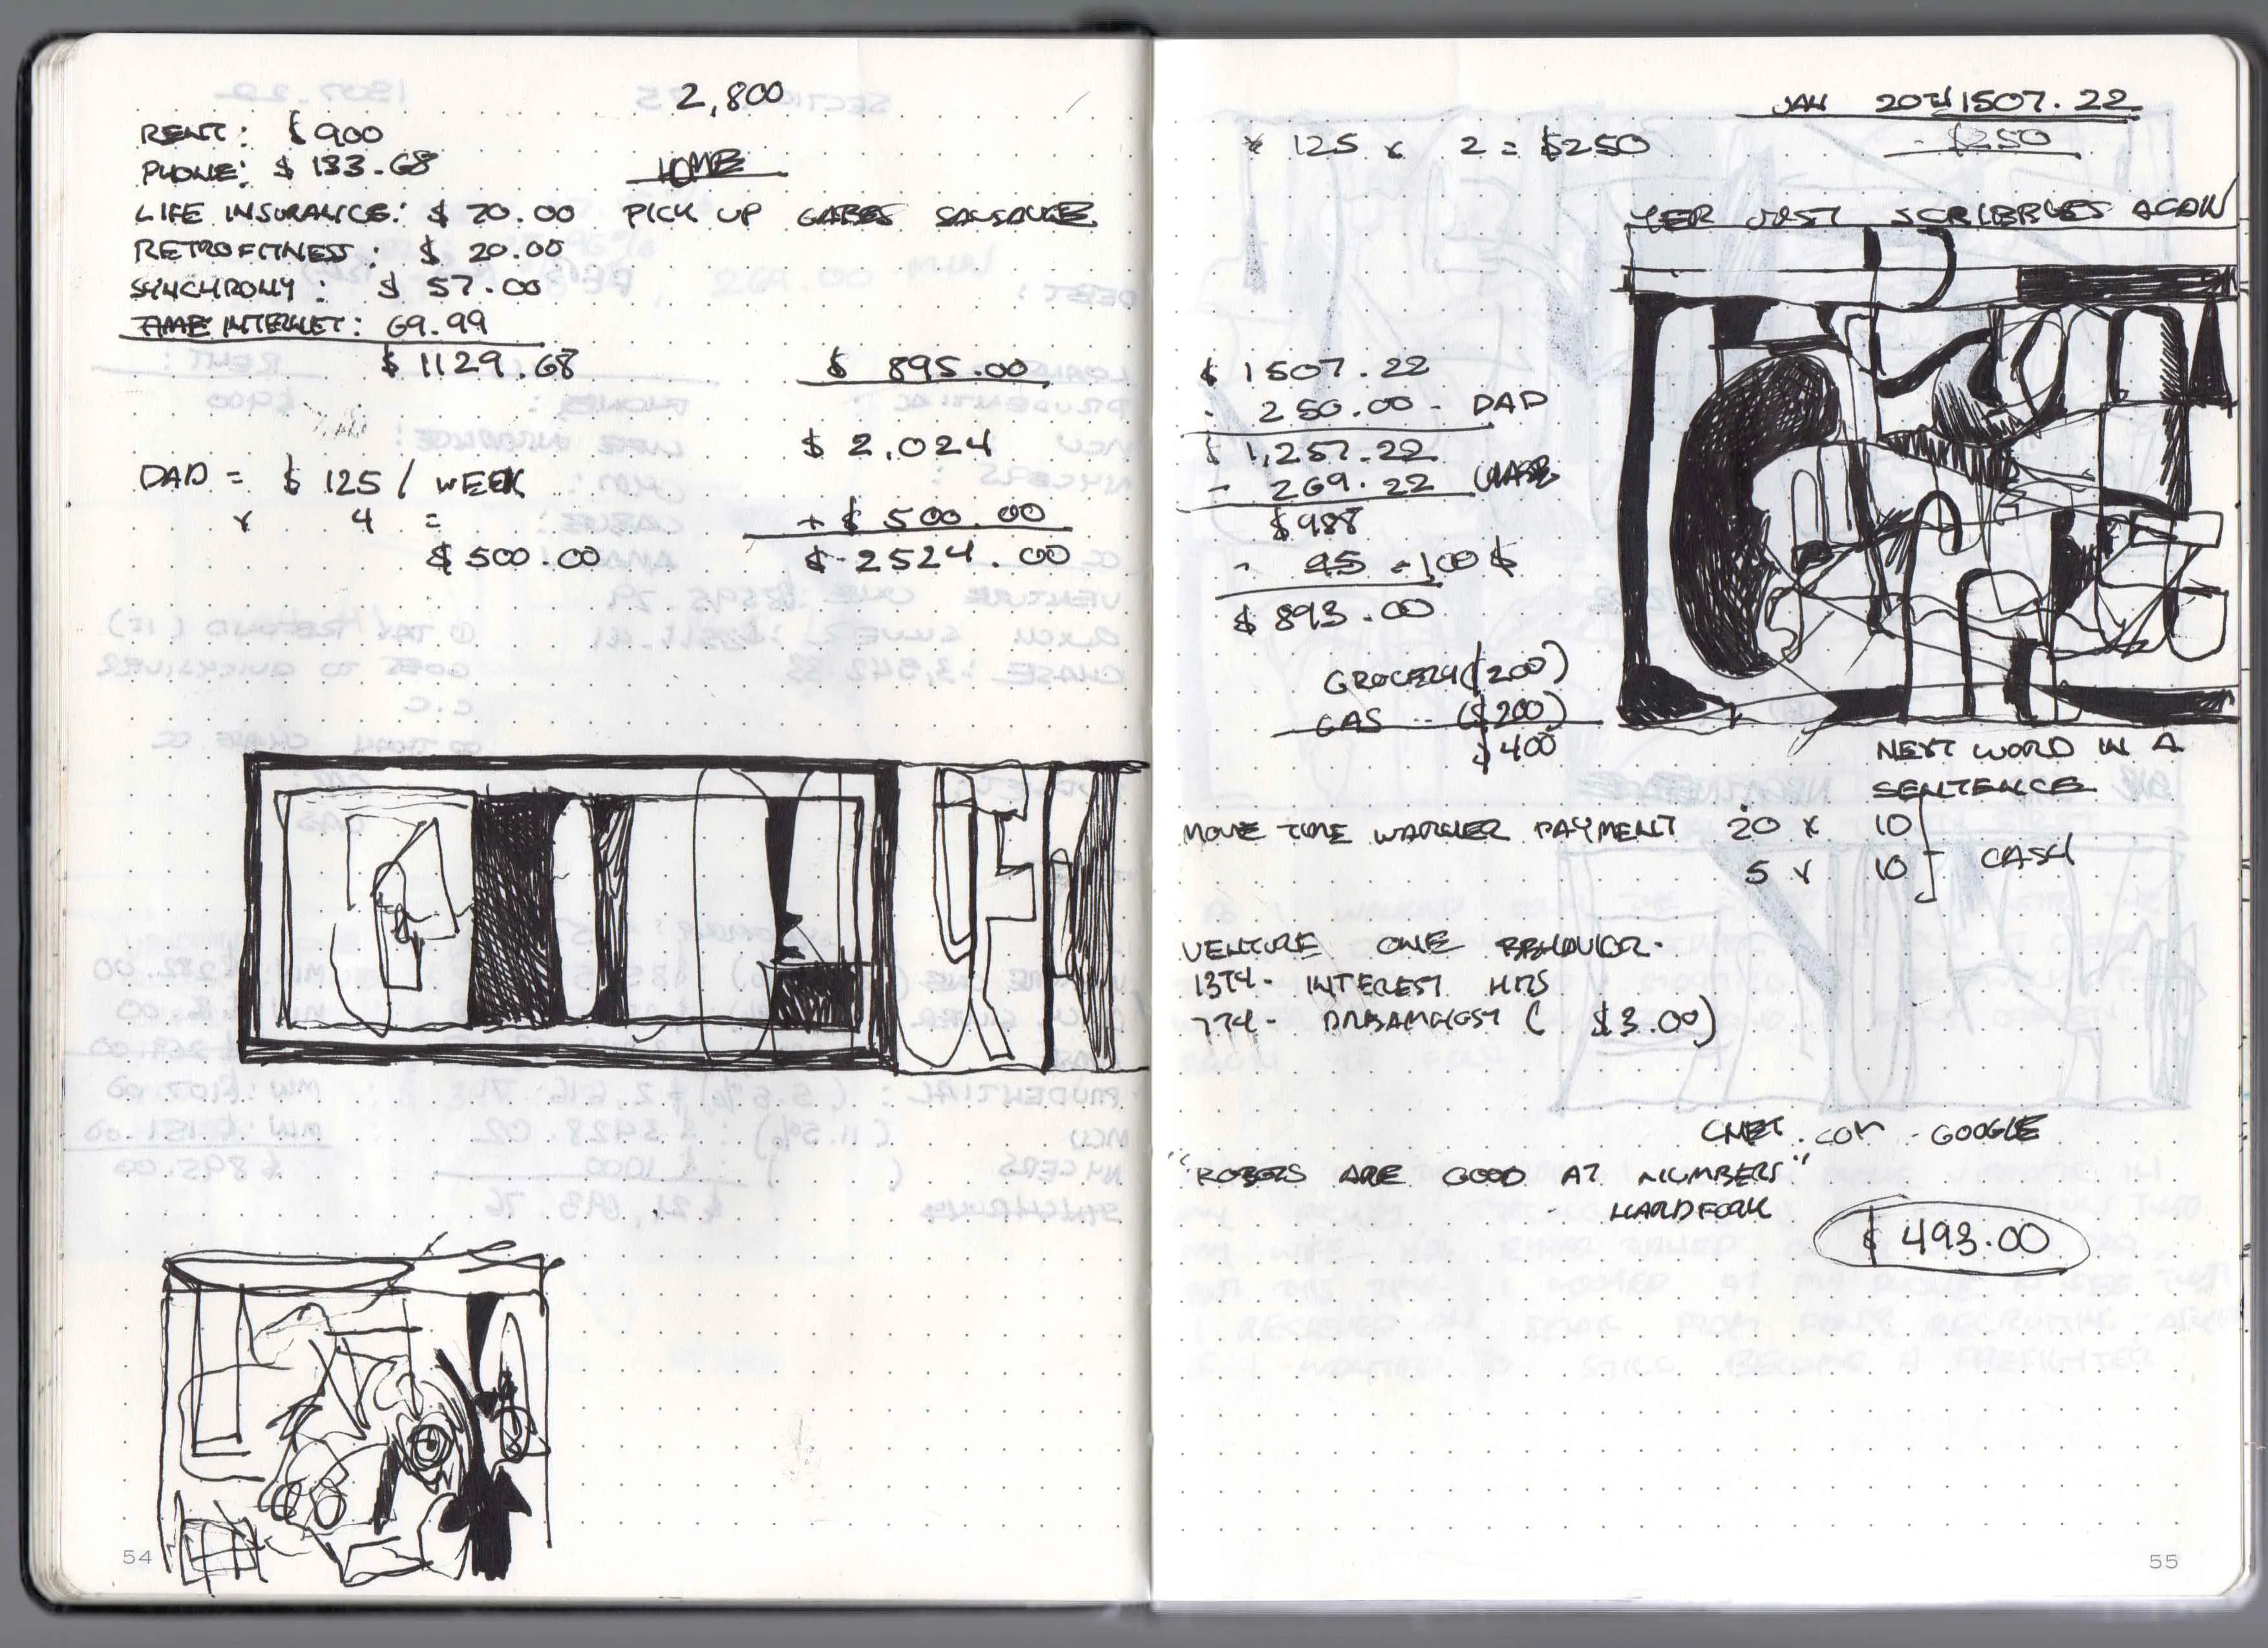 2,800
RENT: $900
PHONE: $ 133.68
HOME
LIFE INSURANCE: $ 20.00 PICK UP GABES SAUSAUGE
RETROFITNESS: $ 20.00
SYNCHRONY: $ 57.00
TIME INTERNET: 69.99
$ 1129.68
$ 895.00
$ 2,024
DAD = $ 125 / WEEK
x 4 =
+ $ 500.00
$ 500.00
$ 2524.00
54
JAN 20TH 1507.22
* 125 x 2 = $250
- $250
YER JUST SCRIBBLES AGAIN
$ 1507.22
- 250.00 - DAD
$ 1,257.22
- 269.22 CHASE
$988
- 95 - 100 $
$ 893.00
GROCERY ($200)
GAS -- ($200)
$400
NEXT WORD IN A
SENTENCE
MOVE TIME WARNER PAYMENT 20 x 10
5 x 10 CASH
VENTURE ONE BEHAVIOR.
13TH - INTEREST HITS
7TH - DREAMHOST ( $3.00)
CNET.COM - GOOGLE
"ROBOTS ARE GOOD AT NUMBERS"
- HARDFORK
$ 493.00
55